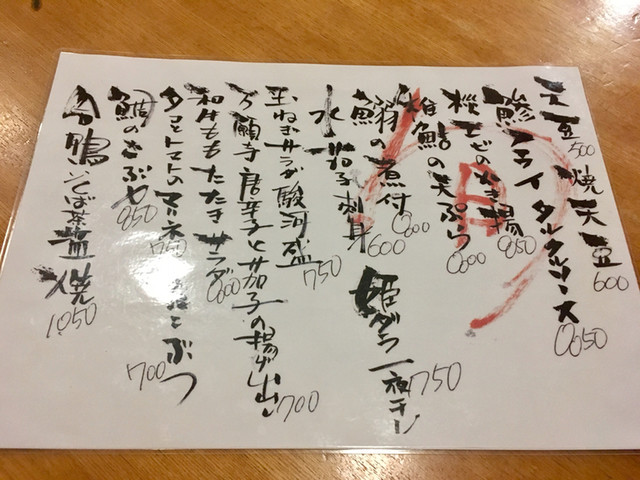 天豆500 焼天豆600
鯵フライタルタルソース 850
桜えびのかき揚 850
稚鮎の天ぷら 800
鰯の煮付 800 姫ダラ一夜干し 750
水茄子刺身 600
玉ねぎサラダ駿河盛 750
万願寺唐辛子と茄子の揚げ出し 700
和牛ももたたきサラダ 800
タコとトマトのマリネ 700
鯛のさぶや 850
合鴨そば茶藍焼 1050